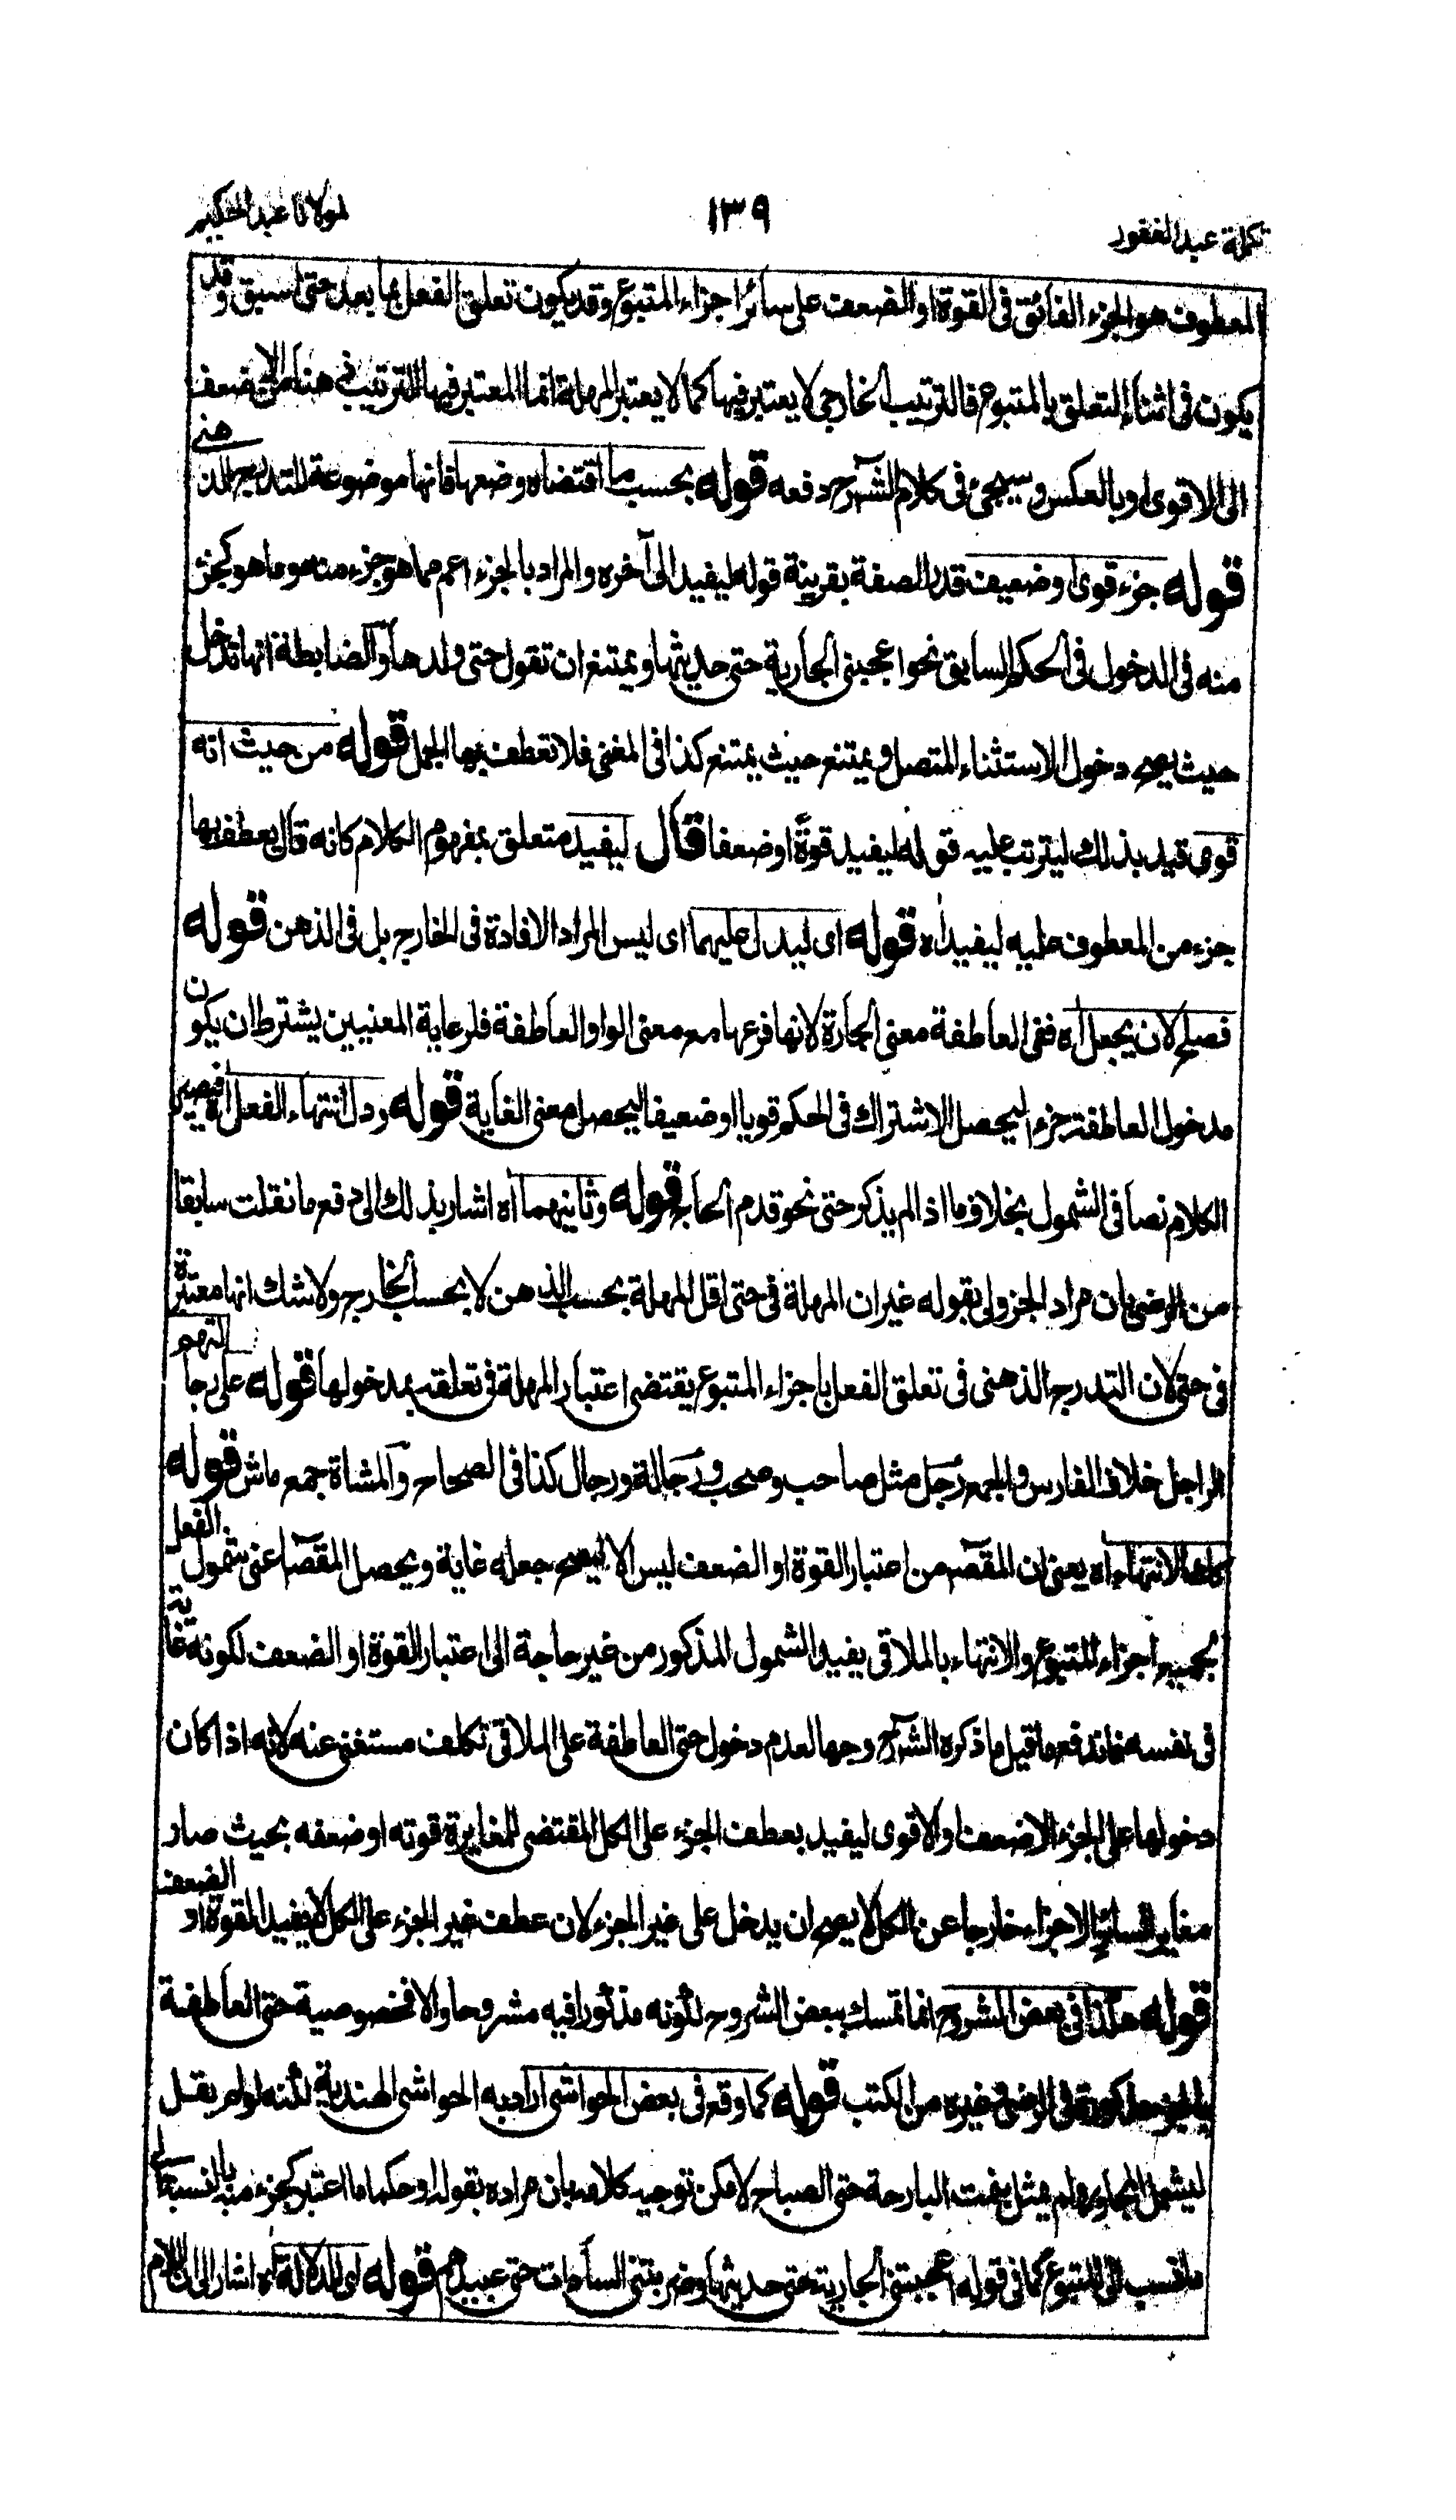 تكملة عبد الغفور
١٣٩
لمولانا عبد الحكيم
المعطوف هو الجزء الفائق فى القوة او الضعف على سائر اجزاء المتبوع وقد يكون تعلق الفعل بما بعد حتى اسبق وقد
يكون فى اثناء التعلق بالمتبوع فالترتيب الخارجى لا يعتبر فيها كما لا يعتبر المهلة انما المعتبر فيها الترتيب فى هنا من الاضعف
الى الاقوى او بالعكس وسيجئ فى كلام الشارح دفعه قوله بحسب ما اقتضاه وضعها فانها موضوعة للتدريج الذهنى
قوله جزء قوى او ضعيف قدر الصفة بقرينة قوله ليفيد الى آخره والمراد بالجزء اعم مما هو جزء منه وما هو كجزء
منه فى الدخول فى الحكم السابق نحو اعجبنى الجارية حتى حديثها ويمتنع ان تقول حتى ولدها والضابطة انها تدخل
حيث يصح دخول الاستثناء المتصل ويمتنع حيث يمتنع كذا فى المغنى فلا تعطف بها الجمل قوله من حيث انه
قوى قيد بذلك ليترتب عليه قوله ليفيد قوة او ضعفا قال ليفيد متعلق بمفهوم الكلام كانه قال يعطف بها
جزء من المعطوف عليه ليفيد اه قوله اى ليدل عليهما اى ليس المراد الافادة فى الخارج بل فى الذهن قوله
فصلح لان يجعل اه ففى العاطفة معنى الجارة لانها فرعها مع معنى الواو العاطفة فلرعاية المعنيين يشترط ان يكون
مدخول العاطفة جزء ليحصل الاشتراك فى الحكم قويا او ضعيفا ليحصل معنى الغاية قوله ودل انتهاء الفعل اه فيصير
الكلام نصا فى الشمول بخلاف ما اذا لم يذكر حتى نحو قدم الحاج قوله وثانيهما اه اشار بذلك الى دفع ما نقلت سابقا
من الرضى بان مراد الجزولى بقوله غير ان المهلة فى حتى اقل المهلة بحسب الذهن لا بحسب الخارج ولا شك انها معتبرة
فى حتى لان التدريج الذهنى فى تعلق الفعل باجزاء المتبوع يقتضى اعتبار المهلة فى تعلقه بمدخولها قوله على رجالتهم
الراجل خلاف الفارس والجمع رجل مثل صاحب وصحب ورجالة ورجال كذا فى الصحاح والمشاة جمع ماش قوله
الانتهاء اه يعنى ان المقصد من اعتبار القوة او الضعف ليس الا ليصح جعله غاية ويحصل المقصد اعنى شمول الفعل
بجميع اجزاء المتبوع والانتهاء بالملاقى يفيد الشمول المذكور من غير حاجة الى اعتبار القوة او الضعف لكونه غاية
فى نفسه فاندفع ما قيل ما ذكره الشارح وجها لعدم دخول حتى العاطفة على الملاقى تكلف مستغنى عنه لانه اذا كان
دخولها على الجزء الاضعف او الاقوى ليفيد بعطف الجزء على الكل المقتضى للمغايرة قوته او ضعفه بحيث صار
مغايرا لسائر الاجزاء خارجا عن الكل لا يصح ان يدخل على غير الجزء لان عطف غير الجزء على الكل لا يفيد القوة او الضعف
قوله هكذا فى بعض الشروح انما تمسك ببعض الشروح لكونه مذكورا فيه مشروحا والا فخصوصية حتى العاطفة
بالجزء مذكورة فى الرضى وغيره من الكتب قوله كما وقع فى بعض الحواشى اراد به الحواشى الهندية لكنه لو لم يقل
ليشمل المجاور ولم يمثل بنمت البارحة حتى الصباح لامكن توجيه كلامه بان مراده بقوله او حكما ما اعتبر كجزء منه بالنسبة الى
ما نسب الى المتبوع كما فى قوله اعجبتنى الجارية حتى حديثها وضربنى السادات حتى عبيدهم قوله لى الدلالة اه اشار الى ان اللام